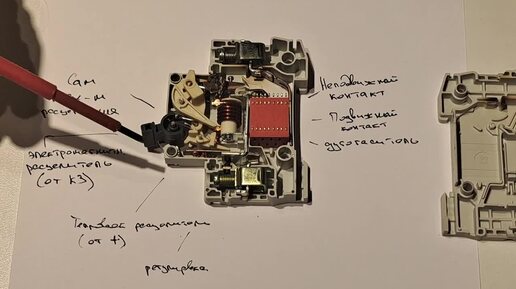 Сам
м-м
расцепления
электромагнитн.
расцепитель
(от КЗ)
Тепловой расцепитель
(от t)
регулировка
Неподвижный
контакт
Подвижный
контакт
дугогаситель